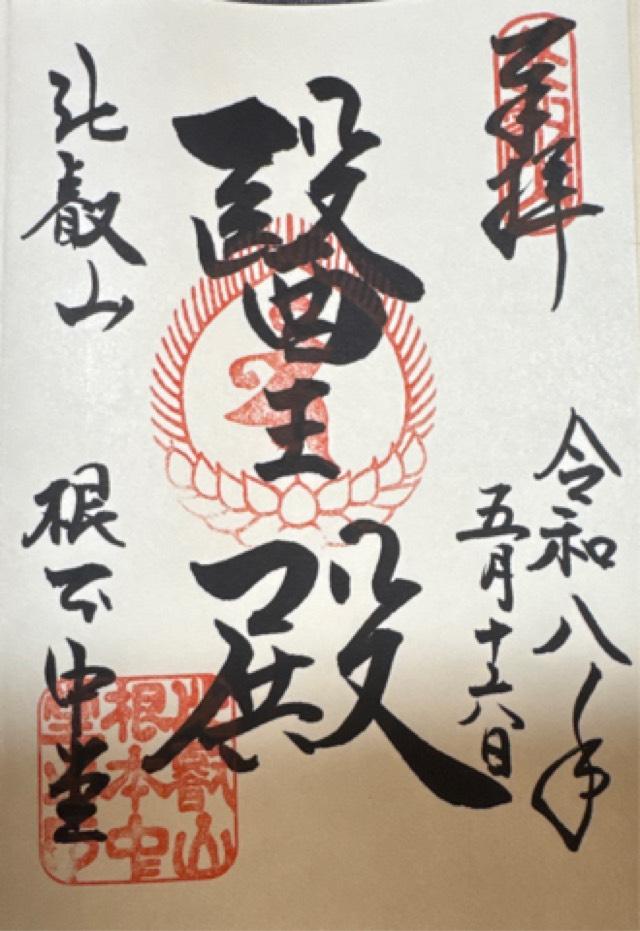 奉拝
令和八年
五月十六日
醫王殿
比叡山
根本中堂
比叡山
根本中
堂之印